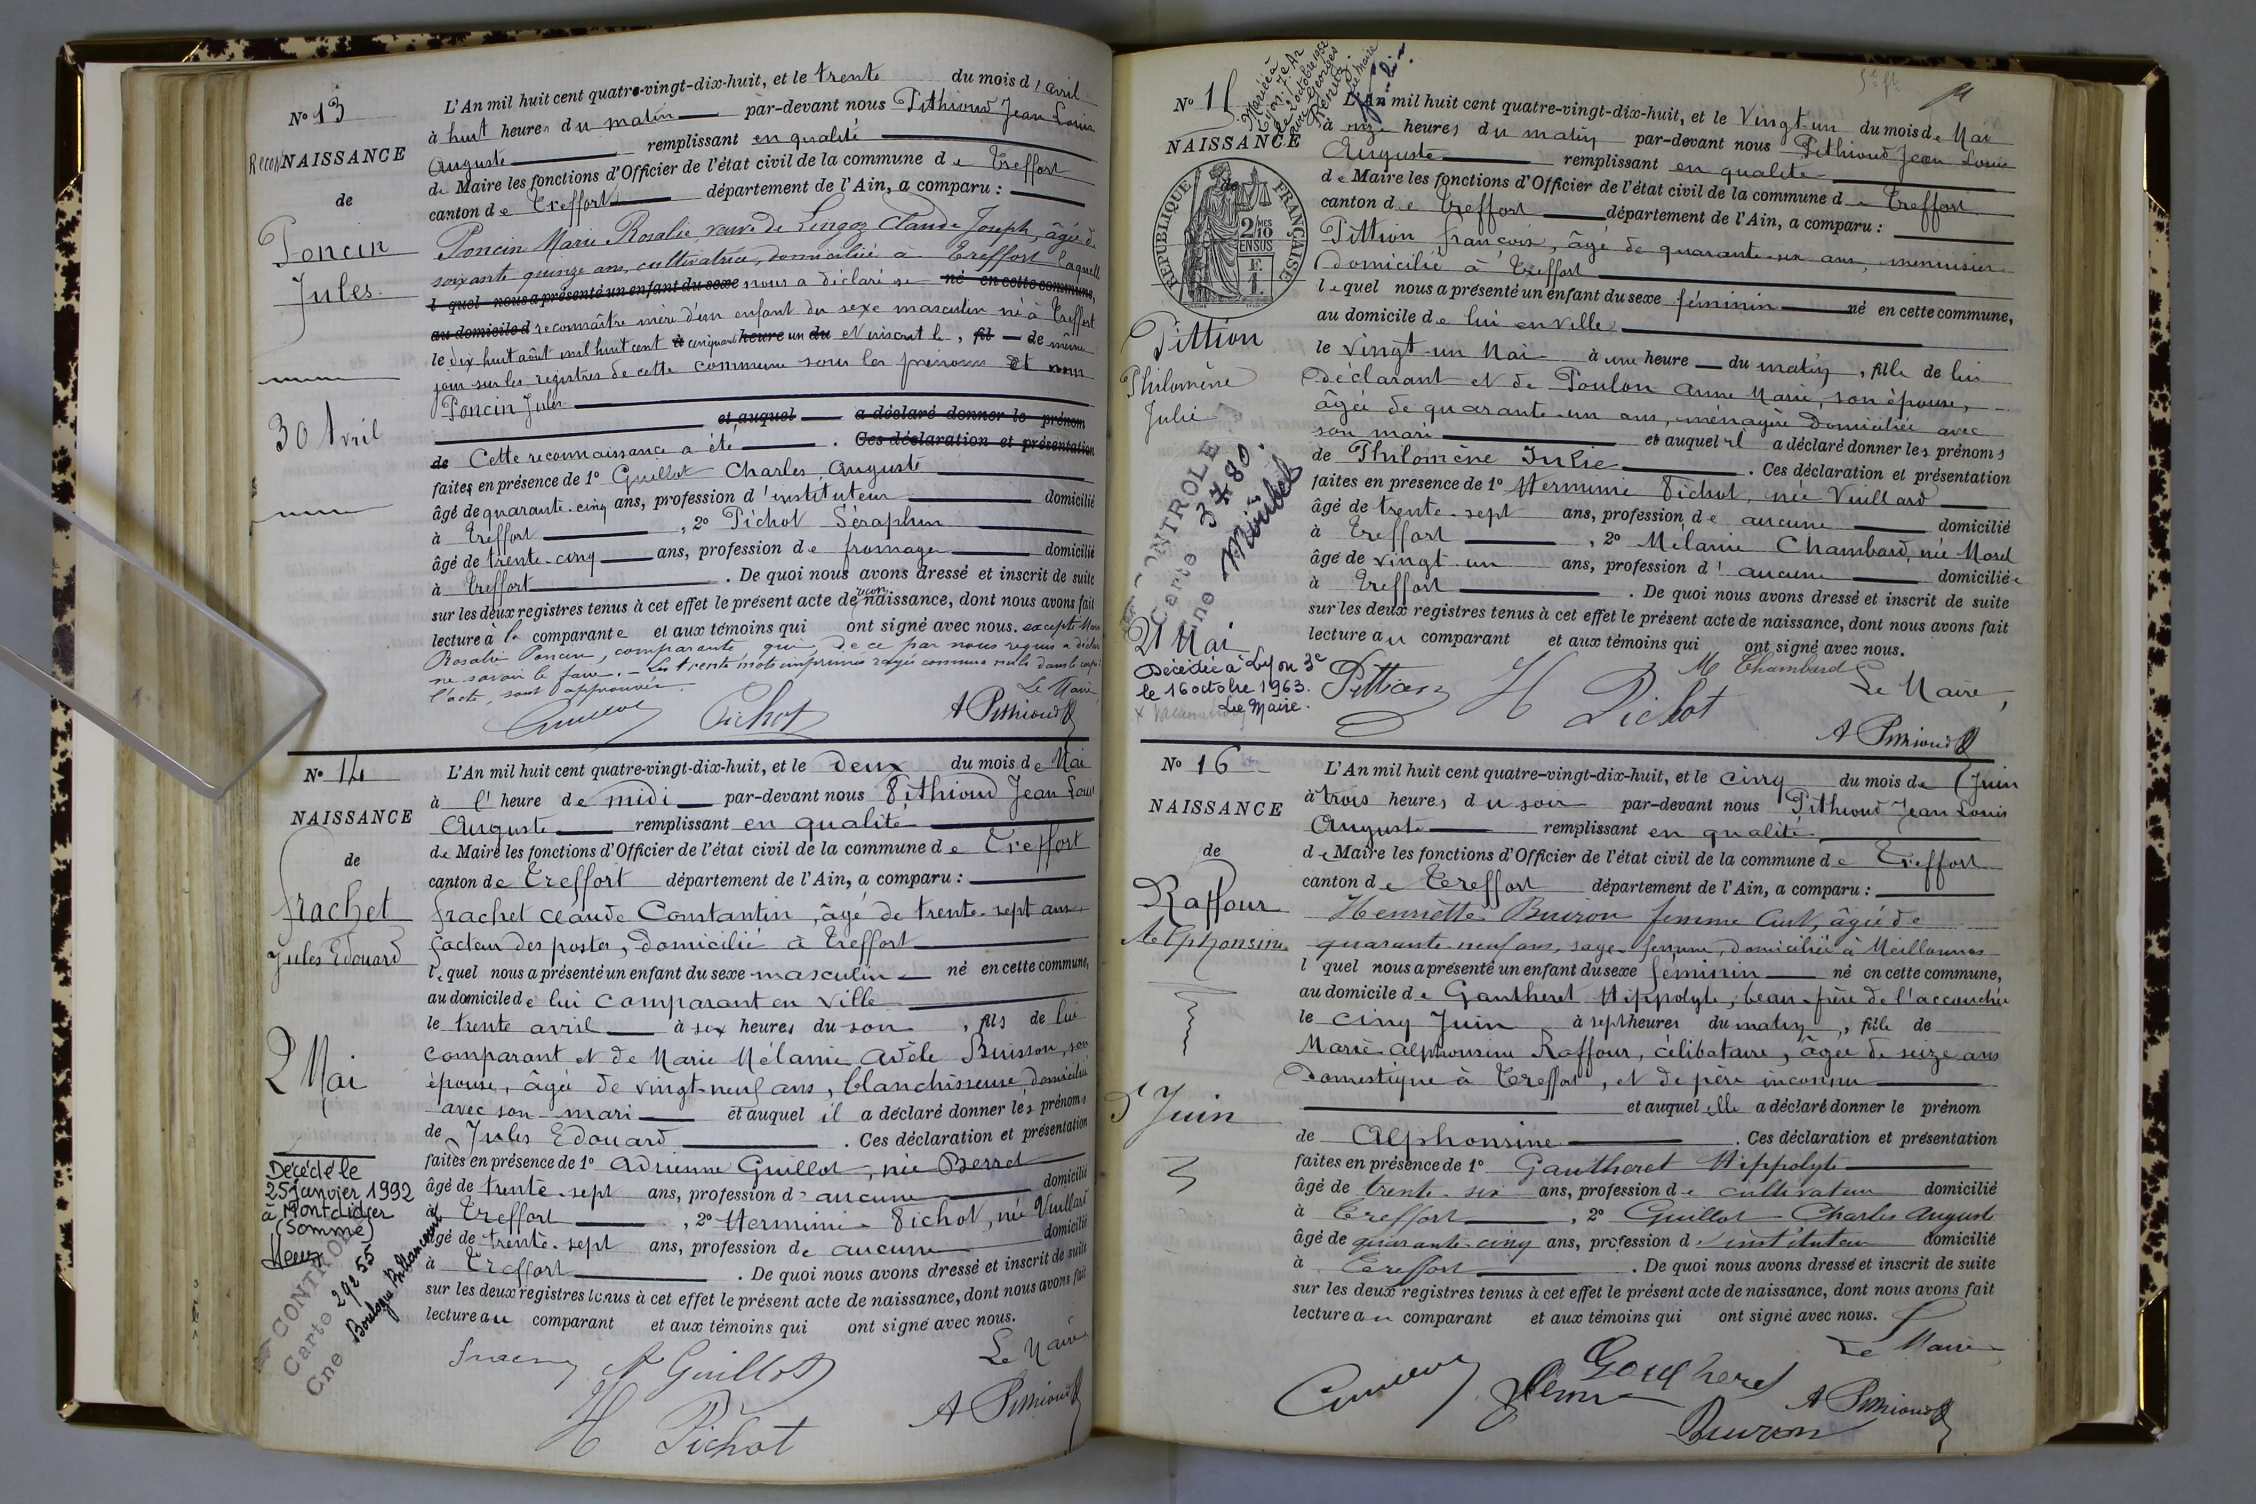 N° 13
ReconNAISSANCE
de
Poncin
Jules
30 Avril
L'An mil huit cent quatre-vingt-dix-huit, et le trente du mois d'avril
à huit heures du matin par-devant nous Pithioud Jean Louis
Auguste remplissant en qualité
de Maire les fonctions d'Officier de l'état civil de la commune de Treffort
canton de Treffort département de l'Ain, a comparu :
Poncin Marie Rosalie, veuve de Lingoz Claude Joseph, âgée de
soixante quinze ans, cultivatrice, domiciliée à Treffort laquelle
l quel nous a présenté un enfant du sexe nous a déclaré se né en cette commune,
au domicile d reconnaître mère d'un enfant du sexe masculin né à Treffort
le dix huit août mil huit cent à cinquante heure un du et inscrit le, fil de même
jour sur les registres de cette commune sous les prénoms et nom
Poncin Jules
et auquel a déclaré donner le prénom
de Cette reconnaissance a été . Ces déclaration et présentation
faites en présence de 1° Guillot Charles Auguste
âgé de quarante-cinq ans, profession d'instituteur domicilié
à Treffort , 2° Pichot Séraphin
âgé de trente-cinq ans, profession de fromager domicilié
à Treffort . De quoi nous avons dressé et inscrit de suite
sur les deux registres tenus à cet effet le présent acte de reconnaissance, dont nous avons fait
lecture à la comparante et aux témoins qui ont signé avec nous. excepté Marie
Rosalie Poncin, comparante qui, de ce par nous requis a déclaré
ne savoir le faire. - Les trente mots imprimés rayés comme nuls dans le corps de
l'acte, sont approuvés. Le Maire
Guillot Pichot A Pithioud
N° 14
NAISSANCE
de
Frachet
Jules Edouard
2 Mai
Décédé le
25 janvier 1992
à Montdidier
(Somme)
CONTROLE
Carte 29255
Cne Boulogne Billancourt
L'An mil huit cent quatre-vingt-dix-huit, et le deux du mois de Mai
à l'heure de midi par-devant nous Pithioud Jean Louis
Auguste remplissant en qualité
de Maire les fonctions d'Officier de l'état civil de la commune de Treffort
canton de Treffort département de l'Ain, a comparu :
Frachet Claude Constantin, âgé de trente-sept ans,
facteur des postes, domicilié à Treffort
lequel nous a présenté un enfant du sexe masculin né en cette commune,
au domicile de lui comparant en ville
le trente avril à six heures du soir, fils de lui
comparant et de Marie Mélanie Adèle Buisson, son
épouse, âgée de vingt-neuf ans, blanchisseuse, domiciliée
avec son mari et auquel il a déclaré donner les prénoms
de Jules Edouard . Ces déclaration et présentation
faites en présence de 1° Adrienne Guillot, née Berret
âgé de trente-sept ans, profession d'aucune domicilié
à Treffort , 2° Herminie Pichot, née Vuillard
âgé de trente-sept ans, profession de aucune domicilié
à Treffort . De quoi nous avons dressé et inscrit de suite
sur les deux registres tenus à cet effet le présent acte de naissance, dont nous avons fait
lecture au comparant et aux témoins qui ont signé avec nous.
A Guillot Le Maire
H Pichot A Pithioud
N° 15
NAISSANCE
de
Mariée à
Lyon 7e Ar
le 2 octobre 1952
avec Georges
Renitz.
Le Maire
REPUBLIQUE FRANÇAISE
2/10 MES EN SUS
Pittion
Philomène
Julie
CONTROLE
Carte 3780.
Cne Miribel
21 Mai
Décédée à Lyon 3e
le 16 octobre 1963.
Le Maire.
L'An mil huit cent quatre-vingt-dix-huit, et le Vingt-un du mois de Mai
à onze heures du matin par-devant nous Pithioud Jean Louis
Auguste remplissant en qualité
de Maire les fonctions d'Officier de l'état civil de la commune de Treffort
canton de Treffort département de l'Ain, a comparu :
Pittion François, âgé de quarante-six ans, menuisier
domicilié à Treffort
lequel nous a présenté un enfant du sexe féminin né en cette commune,
au domicile de lui en ville
le vingt-un Mai à une heure du matin, fille de lui
déclarant et de Poulon Anne Marie, son épouse,
âgée de quarante-un ans, ménagère domiciliée avec
son mari et auquel il a déclaré donner les prénoms
de Philomène Julie . Ces déclaration et présentation
faites en présence de 1° Herminie Pichot, née Vuillard
âgé de trente-sept ans, profession de aucune domicilié
à Treffort , 2° Mélanie Chambard, née Morel
âgé de vingt-un ans, profession d'aucune domiciliée
à Treffort . De quoi nous avons dressé et inscrit de suite
sur les deux registres tenus à cet effet le présent acte de naissance, dont nous avons fait
lecture au comparant et aux témoins qui ont signé avec nous.
Pittion H Pichot M Chambard Le Maire,
A Pithioud
N° 16
NAISSANCE
de
Raffour
Alphonsine
5 Juin
L'An mil huit cent quatre-vingt-dix-huit, et le cinq du mois de Juin
à trois heures du soir par-devant nous Pithioud Jean Louis
Auguste remplissant en qualité
de Maire les fonctions d'Officier de l'état civil de la commune de Treffort
canton de Treffort département de l'Ain, a comparu :
Henriette Buiron femme Curt, âgée de
quarante-neuf ans, sage-femme, domiciliée à Meillonnas
l quel nous a présenté un enfant du sexe féminin né en cette commune,
au domicile de Gautheret Hippolyte, beau-frère de l'accouchée
le cinq Juin à sept heures du matin, fille de
Marie Alphonsine Raffour, célibataire, âgée de seize ans
Domestique à Treffort, et de père inconnu
et auquel elle a déclaré donner le prénom
de Alphonsine . Ces déclaration et présentation
faites en présence de 1° Gautheret Hippolyte
âgé de trente-six ans, profession de cultivateur domicilié
à Treffort , 2° Guillot Charles Auguste
âgé de quarante-cinq ans, profession d'instituteur domicilié
à Treffort . De quoi nous avons dressé et inscrit de suite
sur les deux registres tenus à cet effet le présent acte de naissance, dont nous avons fait
lecture au comparant et aux témoins qui ont signé avec nous.
Le Maire,
Guillot Gautheret
Buiron A Pithioud